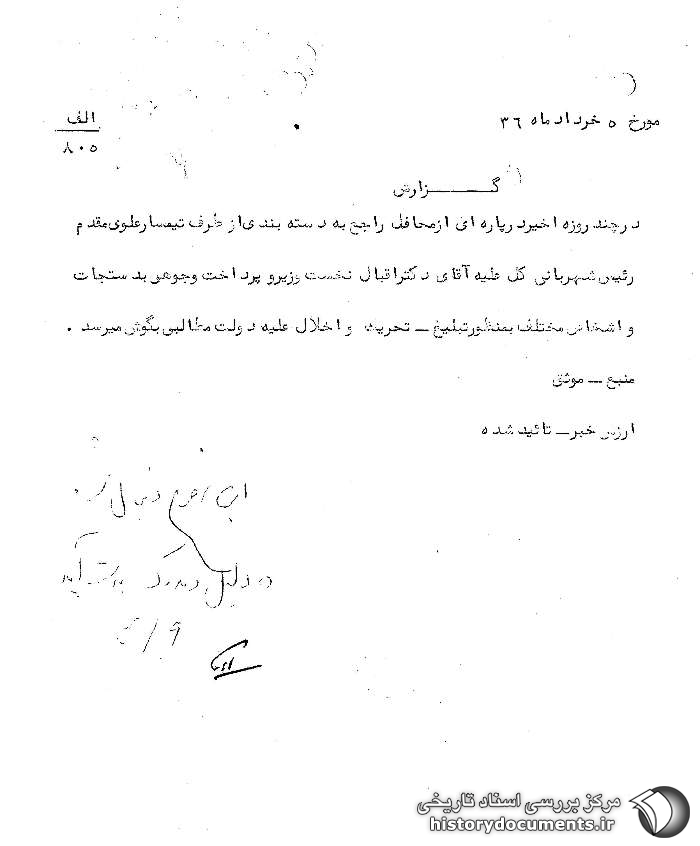 مورخ ٥ خرداد ماه ٣٦
الف
٨٠٥
گــــزارش
در چند روزه اخیر در پاره ای از محافل راجع به دسته بندی از طرف تیمسار علوی مقدم
رئیس شهربانی کل علیه آقای دکتر اقبال نخست وزیر و پرداخت وجوهی بدستجات
و اشخاص مختلف بمنظور تبلیغ ــ تحریک و اخلال علیه دولت مطالبی بگوش میرسد .
منبع ــ موثق
ارزش خبر ــ تائید شده
این دنبال
دلیل بدست آید
مرکز بررسی اسناد تاریخی
historydocuments.ir